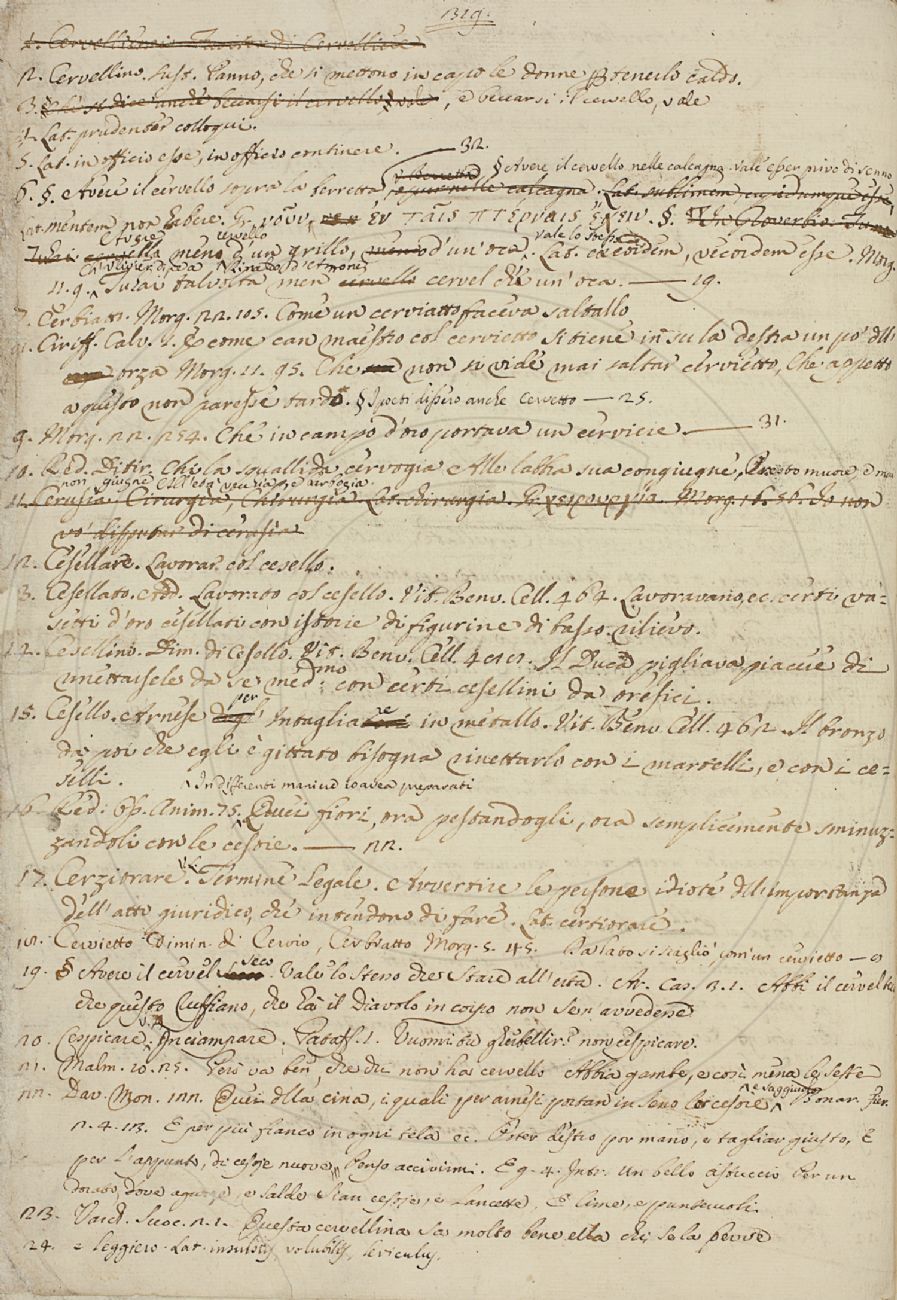 319.
1. Cervelliera. di Cervelliere
2. Cervellino. Sust. Panno, che si mettono in capo le donne p tenerlo caldo.
3. § si dice anche beccarsi il cervello, , e beccarsi il cervello, vale
4. Lat. prudenter colloqui.
5. Lat. in officio esse, in officio continere. — 32.
§ Avere il cervello nelle calcagna vale esser privo di senno
6. §. Avere il cervello sopra la berretta calcagna. Lat.
Lat. mentem non habere. Gr. νοῦν, ἐν ταῖς πτέρναις ἔχειν. §.
Avere cervello vale lo stesso
meno d un grillo, d'un'oca. Lat. excordem, vecordem esse. Morg.
Ch' Ulivier di Rinaldo
11. 9. Furai talvolta men cervello cervel che un'oca. — 19.
7. Cerbiatt. Morg. 22. 105. Come un cerviatto faceva saltallo
Ciriff. Calv. 1. E come can maestro col cervietto Si tiene in su la destra un po' all'
orza Morg. 11. 95. Che non si vide mai saltar cervietto, Che appetto
a questo non paresse tardo. § I poeti dissero anche Cervetto — 25.
9. Morg. 22. 254. Che in campo d'oro portava un cerviere. — 31.
10. Red. Ditir. Chi la squallida cervogia Alle labbra sua congiugne, Presto muore, e mai
non giugne All'età vecchia, e barbogia.
11. Cerusia. Cirurgia, Chirurgia. Lat. chirurgia. Gr. χειρουργία. Morg. 16. 56. Io non
vo' disputar di cerusia
12. Cesellare. Lavorar col cesello.
13. Cesellato. Add. Lavorato col cesello. Vit. Benv. Cell. 464. Lavoravano, ec. certi va=
setti d'oro cesellati con istorie di figurine di basso rilievo.
14. Cesellino. Dim. di Cesello. Vit. Benv. Cell. Il Duca pigliava piacere di
rinettarsele da se med.mo con certi cesellini da orefici.
15. Cesello. Arnese per Intagliare in metallo. Vit. Benv. Cell. 462. Il bronzo
da poi che egli è gittato bisogna rinettarlo con i martelli, e con i ce=
selli.
In differenti maniere l'avea preparati
16. Red. Op. Anim. 75. Quei fiori, ora pestandogli, ora semplicemente sminuz=
zandoli con le cesoie. — 22.
17. Cerziorare. V.L. Termine Legale. Avvertire le persone idiote dll'importanza
dell'atto giuridico, che intendono di fare. Lat. certiorare.
18. Cervietto Dimin. di Cervio, Cerbiatto Morg. 5. 45. Da lato si scagliò, com'un cervietto — 8
19. § Avere il cervel seco. Vale lo stesso che Stare all'erta. Ar. Cas. 3. 1. Abbi il cervel teco
che questo Ruffiano, che ha il Diavolo in corpo non se n'avvedesse
20. Cespicare. V.A. Inciampare. Pataff. 1. non cespicare.
21. Malm. 10. 25. Però va ben, che chi non ha cervello Abbia gambe, e così mena le seste
22. Dav. Mon. 122. Quei dlla Cina, i quali per arnesi portan in seno le cesoie, e saggiuolo Bonar. Fier.
2. 4. 18. E per più fianco in ogni tela ec. Poter destro por mano, e tagliar giusto, E
per l'appunto, di cesoje nuove, Penso accivirmi. E g. 4. Intr. Un bello astuccio Per un
dorato, dove aguzze, e salde Stan cesoje, e Lancette, E lime, e punteruoli.
23. Varch. Suoc. 2. 1. Questa cervellina sa molto bene ella chi se la perde
24. e leggiero. Lat. insulsus, volubilis, leviculus.